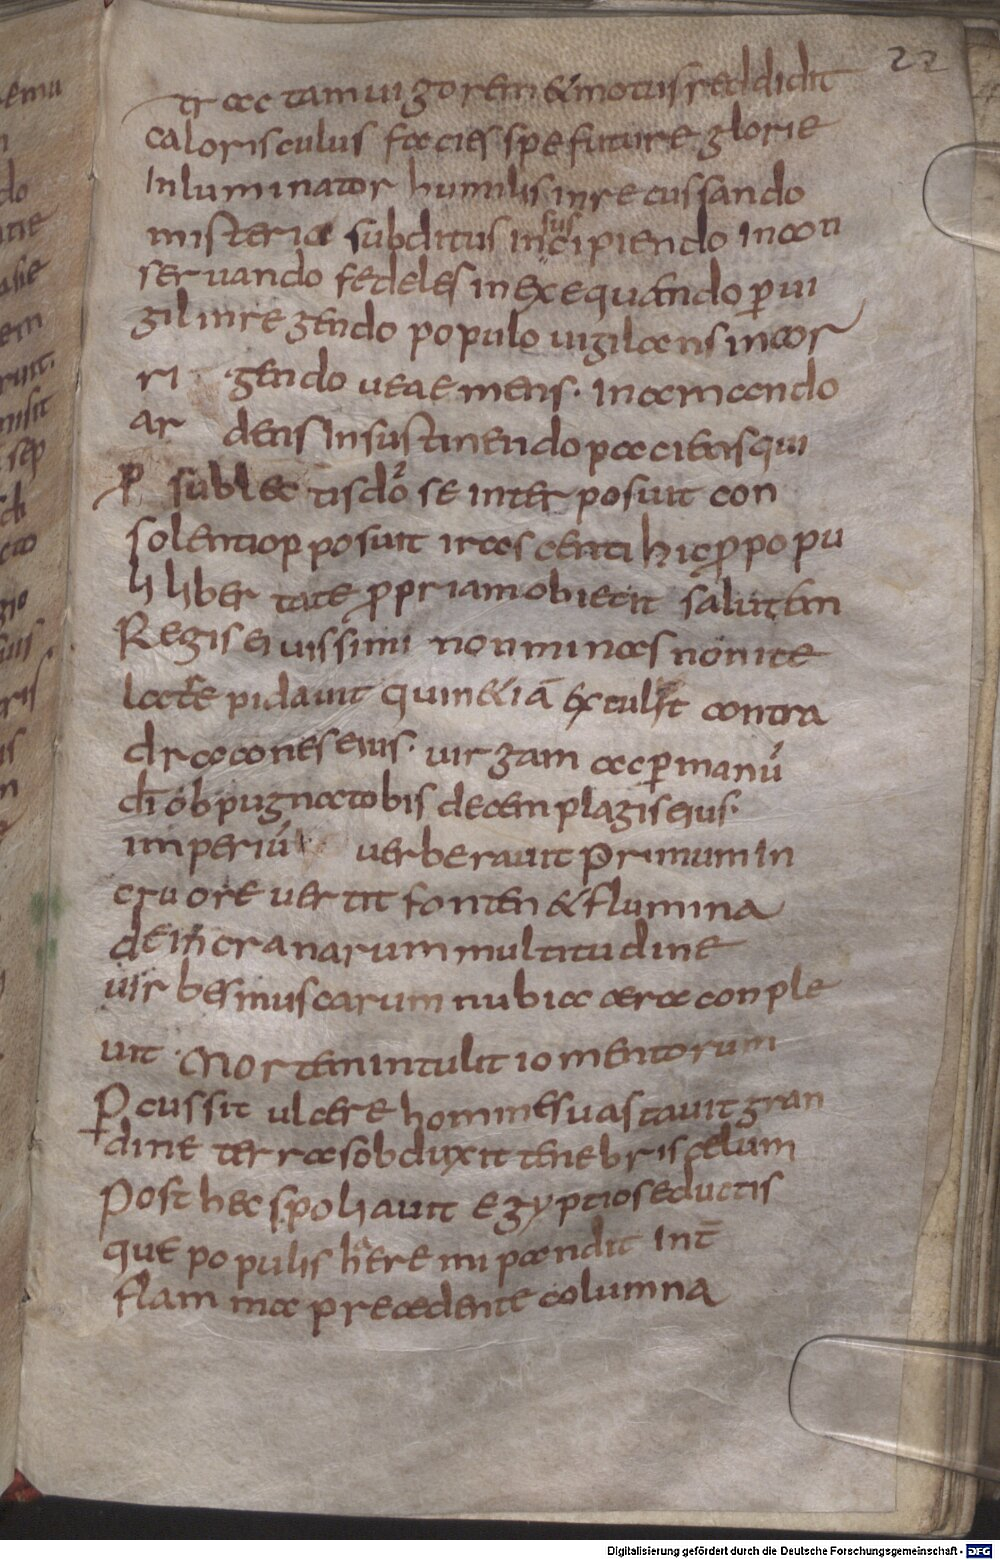 22
tractam uigorem & motus reddidit
calorisculus facies spe future glorie
Inluminator humilis inrecussando
misteria subditus insuscipiendo incon
seruando fedeles in exequando p̱ui
gil inregendo populo uigilans incor
ri gendo ueaemens· In amcendo
ar dens In sustinendo paciensqui
p̱ sublectis dō se inter posuit con
solentiop posuit irascenti hic ꝓpopu
li libertate ꝓpriam obiecit salutem
Regis euissimi non minas non ire
lacte pidauit quin & iā exculsit contra
dracones eius· uirgam ac p̱ manū
dī obpugnatobis decem plagis eius·
imperiū uerberauit Primum In
cruore uertit fonten & flumina
dein cranarum multitudine
uirbes muscarum nubia aera conple
uit· Mortem intulit iomentorum
P̱cussit ulcere homines uastauit gran
dine terra sobduxit tenebris celum
Post hec spoliauit egyptios eductis
que populis heremi pandit Int̄
flamma precedente columna
Digitalisierung gefördert durch die Deutsche Forschungsgemeinschaft - DFG